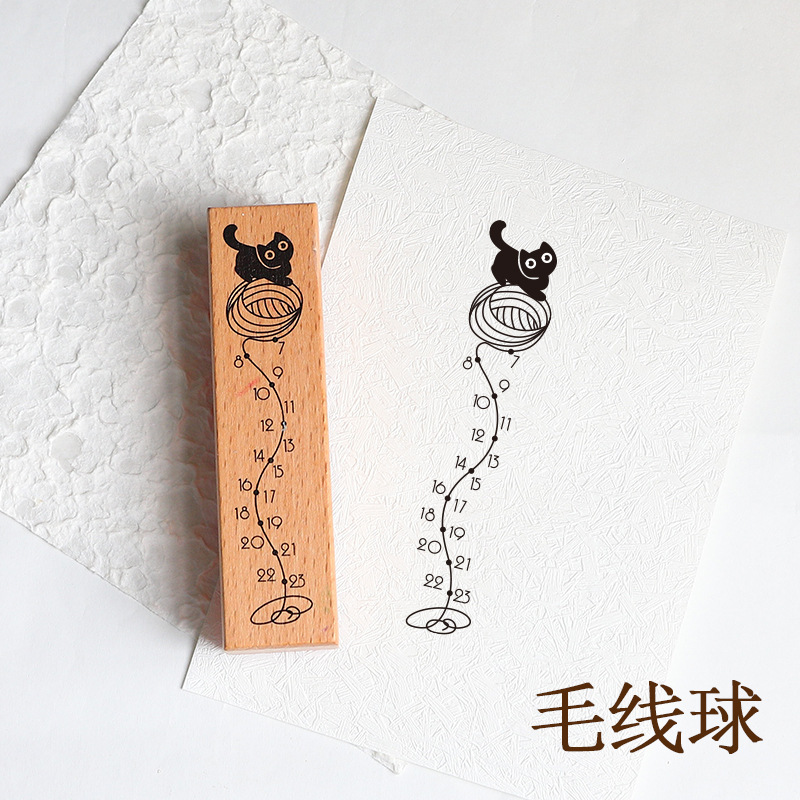 7
8
9
10
11
12
13
14
15
16
17
18
19
20
21
22
23
7
8
9
10
11
12
13
14
15
16
17
18
19
20
21
22
23
毛线球